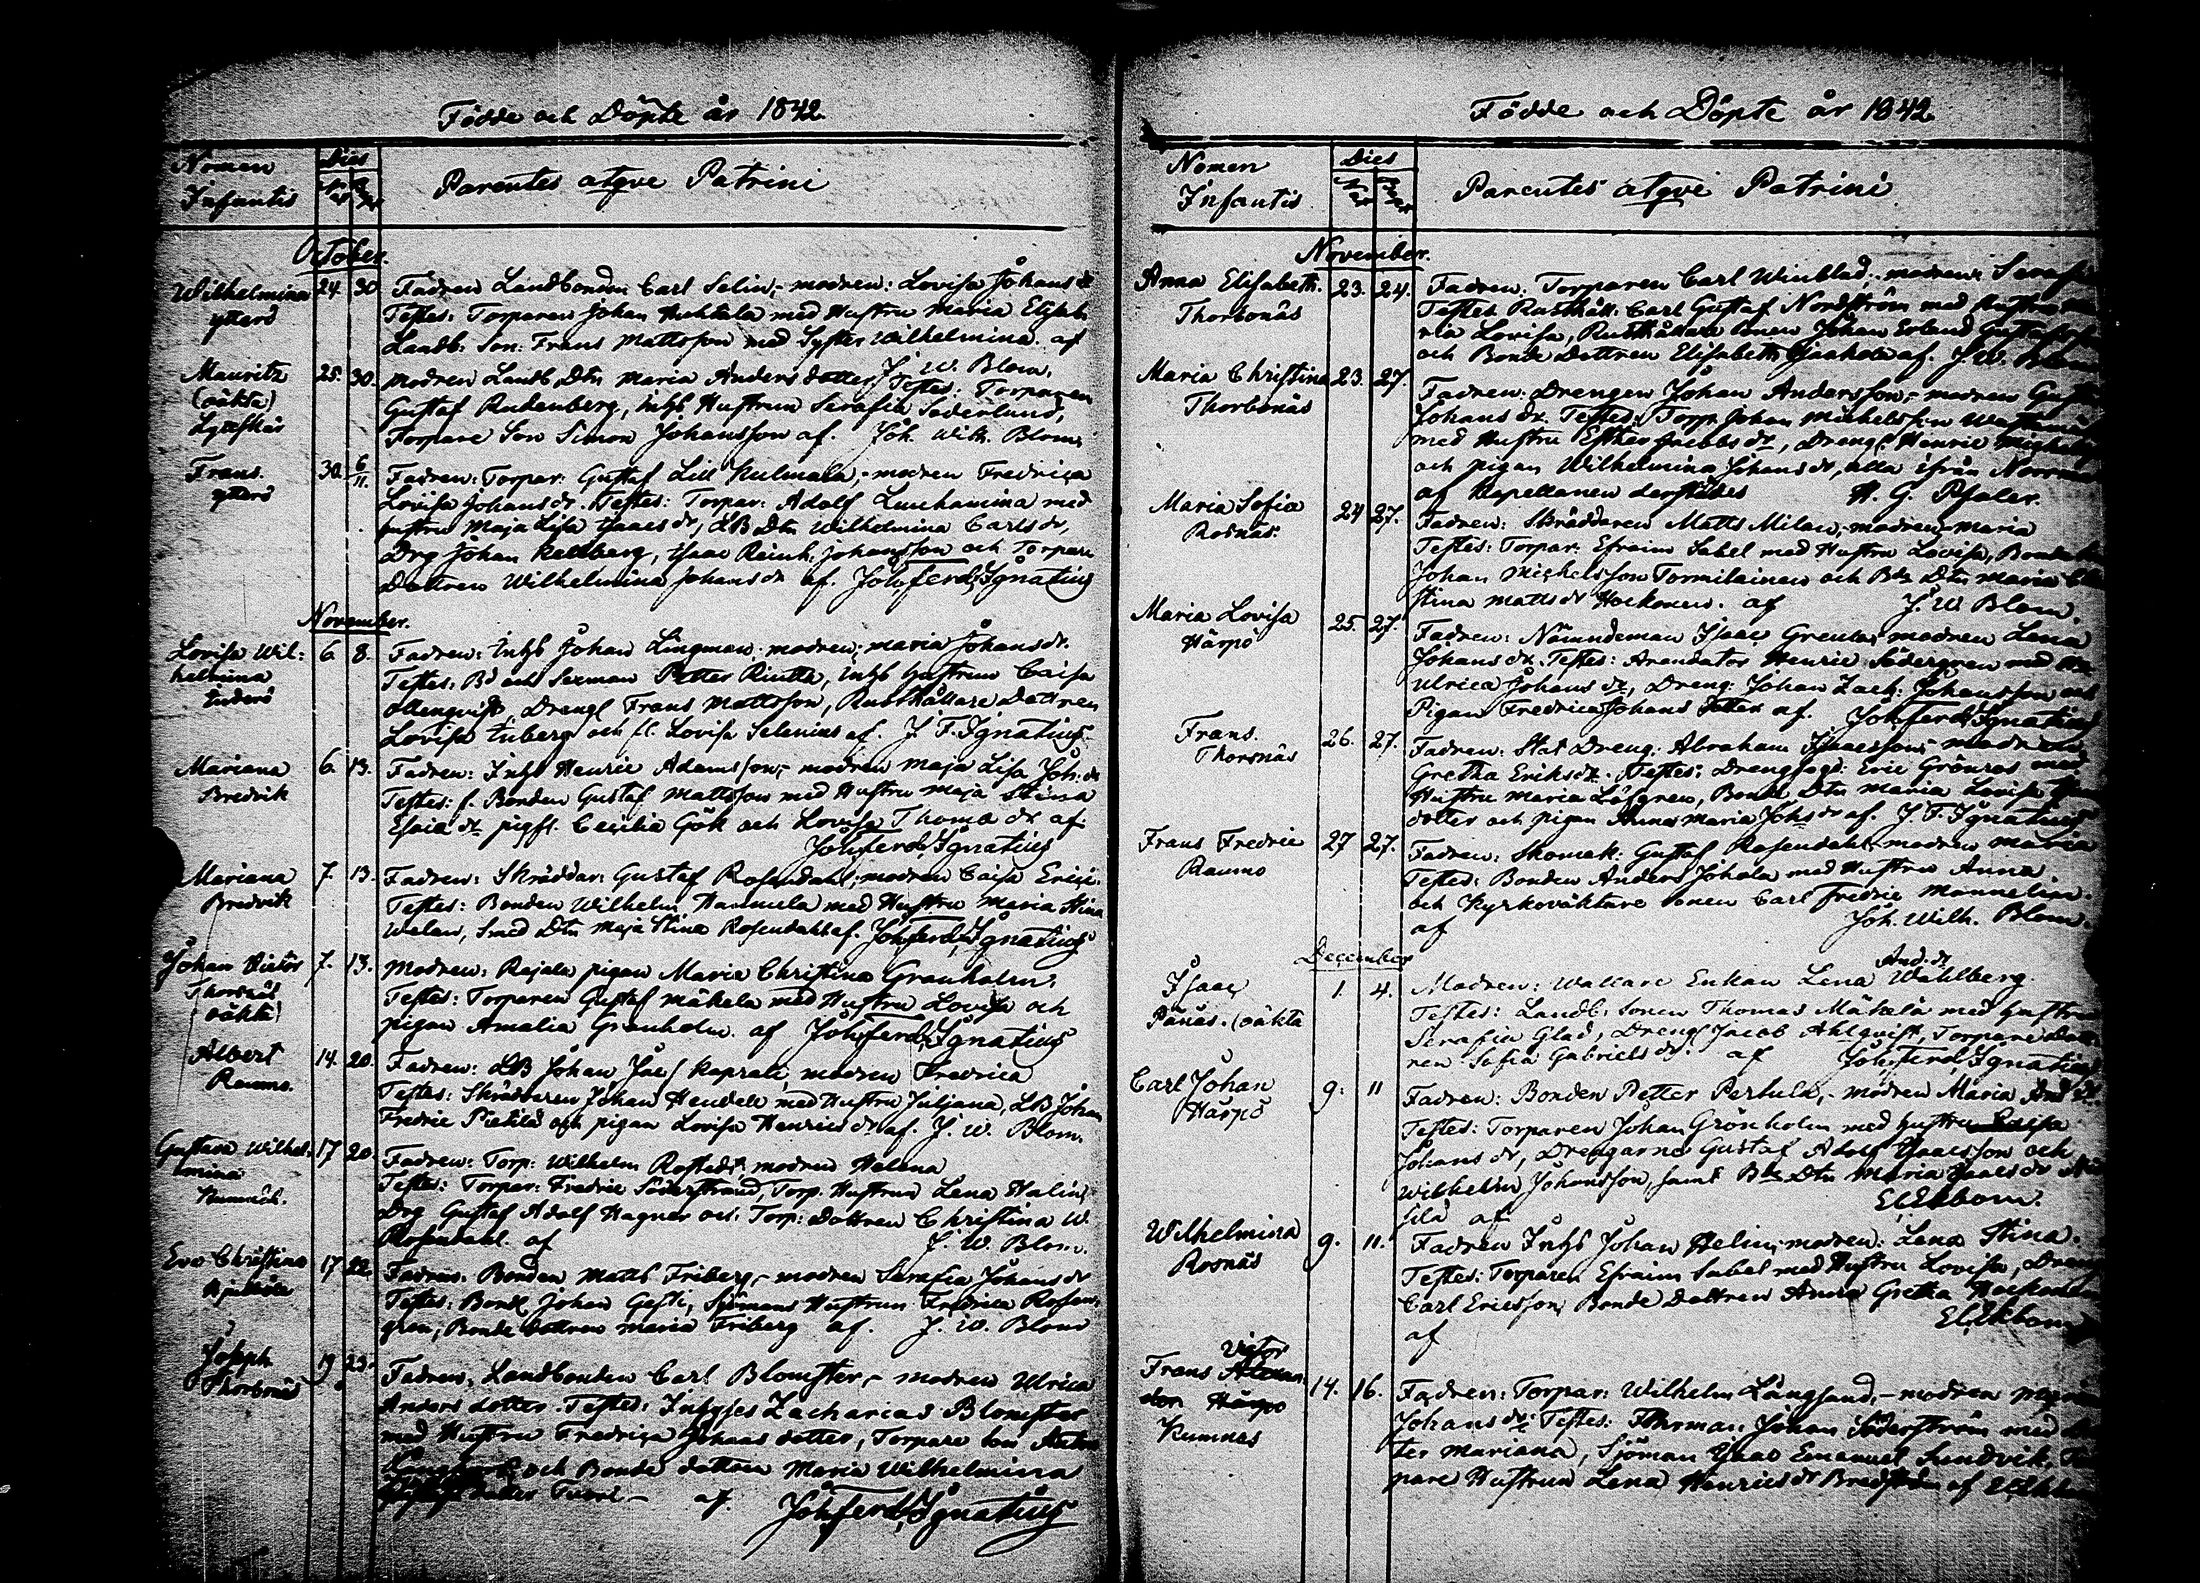 Födde och Döpte år 1842.
Nomen Infantis
Dies
Parentes atqve Patrini
October.
Wilhelmina
ytterö
24. 30
Fadren Landbonden Carl Selin,- modren: Lovisa Johans dr
Testes: Torparen Johan Huhtala med Hustru Maria Elisab.
Landb: Son: Frans Mattsson med Syster Wilhelmina. af
J. W. Blom.
Mauritz
(oäkta)
25. 30.
Modren Landb Dtr Maria Anders dotter, Testes: Torparen
Gustaf Rudenberg, Inhs Hustrun Serafia Söderlund,
Torpare Son Simon Johansson af. Joh. Wilh. Blom.
Frans.
ytterö
30. 6/11.
Fadren: Torpar: Gustaf Lill Kulmala,- modren Fredrica
Lovisa Johans dr. Testes: Torpar: Adolf med
hustru Maja Lisa Isaacs dr, LB Dtr Wilhelmina Carls dr,
Drg Johan Kellberg, Isaac Reinh. Johansson och Torpare
Dottren Wilhelmina Johans dr af. Joh. Ferd. Ignatius
November.
Lovisa Wil:
helmina
Inderö
6. 8.
Fadren: Inhs Johan Lingman, modren: Maria Johans dr.
Testes: Bd och Sexman Petter Rintla, Inhs hustrun Caisa
Drengl Frans Mattsson, Rusthållare Dottren
Lovisa Enberg och Lovisa Selenius af. J. F. Ignatius.
Mariana
Bredvik
6. 13.
Fadren: Inhs Henric Adamsson,- modren Maja Lisa Joh. dr
Testes: f. Bonden Gustaf Mattsson med Hustru Maja Stina
Esaie dr pigh. Cecilia Gök och Lovisa Thomæ dr af
Joh. Ferd. Ignatius
Mariana
Bredvik
7. 13.
Fadren: Skräddar: Gustaf Rosendahl, modren Caisa Erics.
Testes: Bonden Wilhelm Hannula med Hustru Maria Stina
Smed Dtr Maja Stina Rosendahl af. Joh. Ferd. Ignatius
Johan Victor
Thorsnäs
oäkta)
7. 13.
Modren: Rajala pigan Maria Christina Granholm,
Testes: Torparen Gustaf Mäkela med Hustru Lovisa och
pigan Amalia Granholm. af Joh. Ferd. Ignatius
Albert
Raumo.
14. 20.
Fadren: LB Johan Kaprali, modren Fredrica
Testes: Skräddaren Johan Hendell med Hustru Juliana, LB Johan
Fredric Pietilä och pigan Lovisa Henrics dr af. J. W. Blom.
Gustava Wilhel-
mina
17 20.
Fadren: Torp: Wilhelm Rostedt, modren Helena
Testes: Torpar: Fredric Söderstrand, Torp. Hustrun Lena Halin,
Drg Gustaf Adolf Hagner och Torp: Dottren Christina W.
Rosendahl. af J. W. Blom.
Eva Christina
17 22.
Fadren: Bonden Matts Friberg,- modren Serafia Johans dr
Testes: Bond. Johan Gesti, Sjömans Hustrun Fredrica Rosen-
gren, Bonde dottren Maria Friberg af. J. W. Blom
Joseph
Thorbonäs
19 23.
Fadren: Landbonden Carl Blomster,- modren Ulrica
Anders dotter. Testes: Inhyses Zacharias Blomster
med Hustru Fredrica Johans dotter, Torpare Son
och Bonde dottren Maria Wilhelmina
af. Joh. Ferd. Ignatius
Födde och Döpte år 1842.
Nomen
Infantis
Dies
Parentes atqve Patrini
November.
Anna Elisabeth.
Thorbonäs
23. 24.
Fadren: Torparen Carl Winblad; modren:
Testes Rusthåll: Carl Gustaf Nordström med hustru
ria Lovisa, Rusthållare Sonen Johan Erland
och Bonde Dottren Elisabeth Jaakola af. J. W. Blom
Maria Christina
Thorbonäs
23. 27.
Fadren: Drengen Johan Andersson,- modren
Johans dr. Testes: Torp. Johan Michelsson
med Hustru Esther Jacobs dr, Drengl. Henric
och pigan Wilhelmina Johans dr, alla ifrån
af Kapellanen derstädes H. G. Psaler.
Maria Sofia
Rosnäs.
24 27.
Fadren: Skräddaren Matts Milan,- modren Maria
Testes: Torpar: Efraim Sabel med Hustru Lovisa,
Johan Michelsson Tormilainen och Bde Dtr Maria
stina Matts dr. af J. W. Blom.
Maria Lovisa
Härpö
25. 27.
Fadren: Nämndeman Isaac modren Lena
Johans dr. Testes: Arendator Henric Södergren med
Ulrica Johans dr, Dreng: Johan Zach: Johansson och
Pigan Fredrica Johans dotter af. Joh. Ferd. Ignatius
Frans.
Thorsnäs
26. 27.
Fadren: Stat Dreng: Abraham Isaacsson,-
Gretha Eriks dr. Testes: Drengfogd: Eric Grönroos med
Hustru Maria Löfgren, Bonde Dtr Maria Lovisa
dotter och pigan Anna Maria Johs dr af. J. F. Ignatius
Frans Fredric
Raumo
27 27.
Fadren: Skomak: Gustaf Rosendahl modren Maria
Testes: Bonden Anders Johola med Hustru Anna
och Kyrkoväktare Sonen Carl Fredric Mannelin.
af Joh. Wilh. Blom.
December
Isaac,
Pänäs. (oäkta
1. 4.
Modren: Wallare Enkan Lena And. dr Wahlberg.
Testes: Landb: Sonen Thomas Mäkelä med hustru
Serafia Glad, Drengl Jacob Ahlqvist, Torpare
ren Sofia Gabriels dr. af Joh. Ferd. Ignatius
Carl Johan
Härpö
9. 11
Fadren: Bonden Petter Perhula,- modren Maria And. dr.
Testes: Torparen Johan Grönholm med hustru Caisa
Johans dr, Drengarne Gustaf Adolf Isacsson och
Wilhelm Johansson, samt Bde Dtr Maria Isaacs dr
af El. Ekbom.
Wilhelmina
Rosnäs
9. 11.
Fadren Inhs Johan Helin, modren: Lena Stina.
Testes: Torparen Efraim Sabel med Hustru Lovisa, Dreng
Carl Ericsson, Bonde Dottren Anna Gretha
af El. Ekbom
Frans Victor Alexan
der Härpö
Kumnäs
14. 16.
Fadren: Torpar: Wilhelm Långsand,- modren
Johans dr. Testes: Johan Söderström med
ter Mariana, Sjöman Isaac Emanuel Sundvik,
pare Hustrun Lena Henrics dr Bredström af